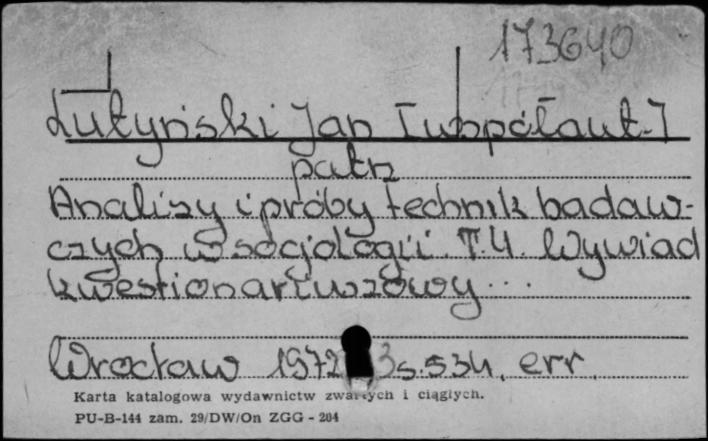 173640
Lutyński Jan [współaut.]
patrz
Analizy i próby technik badaw-
czych w socjologii. T. 4. Wywiad
kwestionariuszowy ...
Wrocław 1972 s. 534, err.
Karta katalogowa wydawnictw zwartych i ciągłych.
PU-B-144 zam. 29/DW/On ZGG - 204